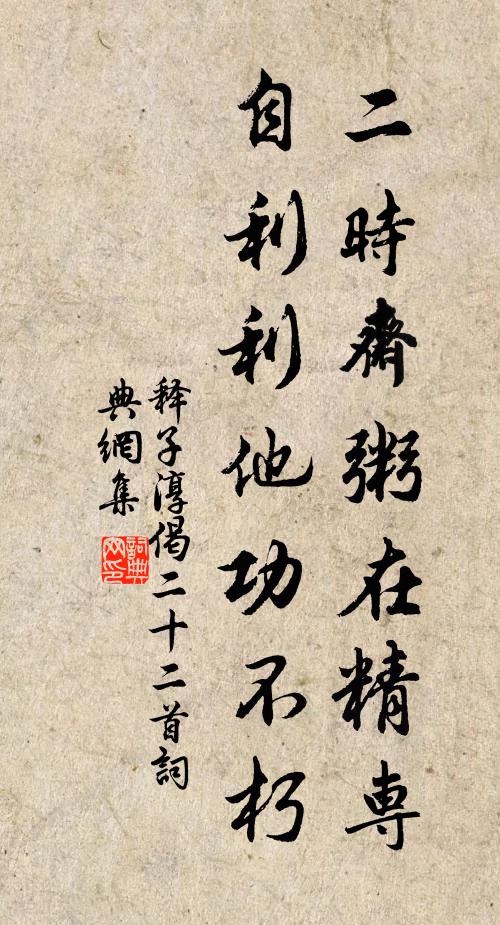 二時齋粥在精専
自利利他功不朽
释子淳偈二十二首詞
典網集
詞典
网印